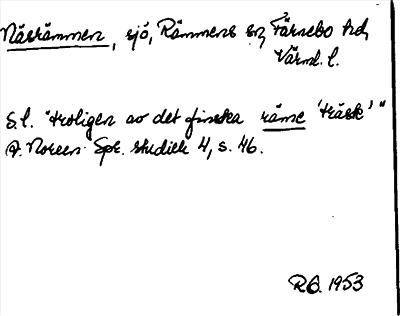 Näsrämmen, sjö, Rämmens sn, Färnebo hd,
Värml. l.
S.l. "troligen av det finska räme 'träsk'"
A. Noreen Spr. studier 4, s. 46.
R.G. 1953